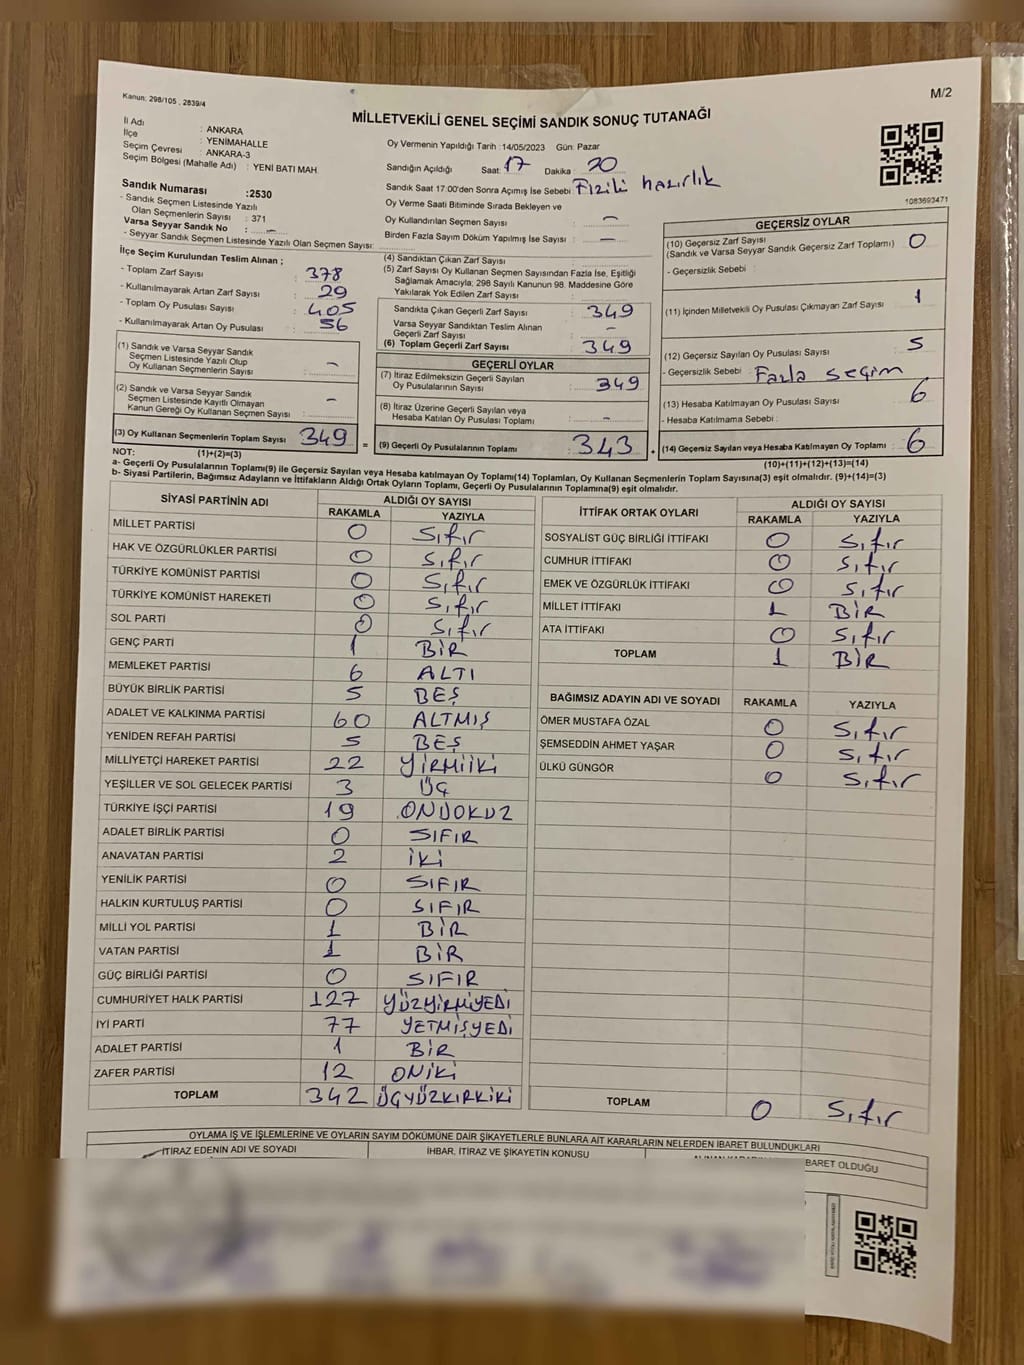 Kanun: 298/105 , 2839/4
M/2
MİLLETVEKİLİ GENEL SEÇİMİ SANDIK SONUÇ TUTANAĞI
İl Adı : ANKARA
İlçe : YENİMAHALLE
Seçim Çevresi : ANKARA-3
Seçim Bölgesi (Mahalle Adı) : YENİ BATI MAH
Oy Vermenin Yapıldığı Tarih :14/05/2023 Gün: Pazar
Sandığın Açıldığı Saat: 17 Dakika : 20
Sandık Saat 17:00'den Sonra Açılmış İse Sebebi : Fiziki hazırlık
Oy Verme Saati Bitiminde Sırada Bekleyen ve
Oy Kullandırılan Seçmen Sayısı : –
Birden Fazla Sayım Döküm Yapılmış İse Sayısı : –
1083693471
Sandık Numarası :2530
- Sandık Seçmen Listesinde Yazılı
Olan Seçmenlerin Sayısı : 371
Varsa Seyyar Sandık No : –
- Seyyar Sandık Seçmen Listesinde Yazılı Olan Seçmen Sayısı:
İlçe Seçim Kurulundan Teslim Alınan ;
- Toplam Zarf Sayısı : 378
- Kullanılmayarak Artan Zarf Sayısı : 29
- Toplam Oy Pusulası Sayısı : 405
- Kullanılmayarak Artan Oy Pusulası : 56
(1) Sandık ve Varsa Seyyar Sandık
Seçmen Listesinde Yazılı Olup
Oy Kullanan Seçmenlerin Sayısı : –
(2) Sandık ve Varsa Seyyar Sandık
Seçmen Listesinde Kayıtlı Olmayan
Kanun Gereği Oy Kullanan Seçmen Sayısı : –
(3) Oy Kullanan Seçmenlerin Toplam Sayısı 349 =
(4) Sandıktan Çıkan Zarf Sayısı :
(5) Zarf Sayısı Oy Kullanan Seçmen Sayısından Fazla İse, Eşitliği
Sağlamak Amacıyla; 298 Sayılı Kanunun 98. Maddesine Göre
Yakılarak Yok Edilen Zarf Sayısı :
Sandıkta Çıkan Geçerli Zarf Sayısı : 349
Varsa Seyyar Sandıktan Teslim Alınan
Geçerli Zarf Sayısı : –
(6) Toplam Geçerli Zarf Sayısı : 349
GEÇERLİ OYLAR
(7) İtiraz Edilmeksizin Geçerli Sayılan
Oy Pusulalarının Sayısı : 349
(8) İtiraz Üzerine Geçerli Sayılan veya
Hesaba Katılan Oy Pusulası Toplamı : –
(9) Geçerli Oy Pusulalarının Toplamı : 343 +
GEÇERSİZ OYLAR
(10) Geçersiz Zarf Sayısı
(Sandık ve Varsa Seyyar Sandık Geçersiz Zarf Toplamı) : 0
- Geçersizlik Sebebi :
(11) İçinden Milletvekili Oy Pusulası Çıkmayan Zarf Sayısı : 1
(12) Geçersiz Sayılan Oy Pusulası Sayısı : 5
- Geçersizlik Sebebi : Fazla seçim
(13) Hesaba Katılmayan Oy Pusulası Sayısı : 6
- Hesaba Katılmama Sebebi :
(14) Geçersiz Sayılan veya Hesaba Katılmayan Oy Toplamı : 6
NOT: (1)+(2)=(3)
(10)+(11)+(12)+(13)=(14)
a- Geçerli Oy Pusulalarının Toplamı(9) ile Geçersiz Sayılan veya Hesaba katılmayan Oy Toplamı(14) Toplamları, Oy Kullanan Seçmenlerin Toplam Sayısına(3) eşit olmalıdır. (9)+(14)=(3)
b- Siyasi Partilerin, Bağımsız Adayların ve İttifakların Aldığı Ortak Oyların Toplamı, Geçerli Oy Pusulalarının Toplamına(9) eşit olmalıdır.
SİYASİ PARTİNİN ADI ALDIĞI OY SAYISI
RAKAMLA YAZIYLA
MİLLET PARTİSİ 0 Sıfır
HAK VE ÖZGÜRLÜKLER PARTİSİ 0 Sıfır
TÜRKİYE KOMÜNİST PARTİSİ 0 Sıfır
TÜRKİYE KOMÜNİST HAREKETİ 0 Sıfır
SOL PARTİ 0 Sıfır
GENÇ PARTİ 1 BİR
MEMLEKET PARTİSİ 6 ALTI
BÜYÜK BİRLİK PARTİSİ 5 BEŞ
ADALET VE KALKINMA PARTİSİ 60 ALTMIŞ
YENİDEN REFAH PARTİSİ 5 BEŞ
MİLLİYETÇİ HAREKET PARTİSİ 22 YİRMİİKİ
YEŞİLLER VE SOL GELECEK PARTİSİ 3 ÜÇ
TÜRKİYE İŞÇİ PARTİSİ 19 ONDOKUZ
ADALET BİRLİK PARTİSİ 0 SIFIR
ANAVATAN PARTİSİ 2 İKİ
YENİLİK PARTİSİ 0 SIFIR
HALKIN KURTULUŞ PARTİSİ 0 SIFIR
MİLLİ YOL PARTİSİ 1 BİR
VATAN PARTİSİ 1 BİR
GÜÇ BİRLİĞİ PARTİSİ 0 SIFIR
CUMHURİYET HALK PARTİSİ 127 YÜZYİRMİYEDİ
İYİ PARTİ 77 YETMİŞYEDİ
ADALET PARTİSİ 1 BİR
ZAFER PARTİSİ 12 ONİKİ
TOPLAM 342 ÜÇYÜZKIRKİKİ
İTTİFAK ORTAK OYLARI ALDIĞI OY SAYISI
RAKAMLA YAZIYLA
SOSYALİST GÜÇ BİRLİĞİ İTTİFAKI 0 Sıfır
CUMHUR İTTİFAKI 0 Sıfır
EMEK VE ÖZGÜRLÜK İTTİFAKI 0 Sıfır
MİLLET İTTİFAKI 1 BİR
ATA İTTİFAKI 0 Sıfır
TOPLAM 1 BİR
BAĞIMSIZ ADAYIN ADI VE SOYADI RAKAMLA YAZIYLA
ÖMER MUSTAFA ÖZAL 0 Sıfır
ŞEMSEDDİN AHMET YAŞAR 0 Sıfır
ÜLKÜ GÜNGÖR 0 Sıfır
TOPLAM 0 Sıfır
OYLAMA İŞ VE İŞLEMLERİNE VE OYLARIN SAYIM DÖKÜMÜNE DAİR ŞİKAYETLERLE BUNLARA AİT KARARLARIN NELERDEN İBARET BULUNDUKLARI
İTİRAZ EDENİN ADI VE SOYADI İHBAR, İTİRAZ VE ŞİKAYETİN KONUSU BARET OLDUĞU